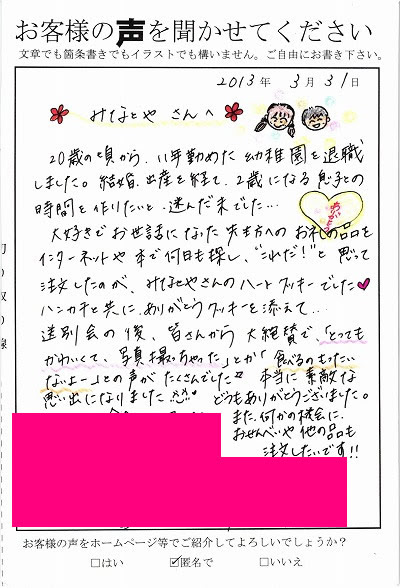 お客様の声を聞かせてください
文章でも箇条書きでもイラストでも構いません。ご自由にお書き下さい。
2013年 3月31日
みなとや さんへ
20歳の頃から、11年勤めた幼稚園を退職
しました。結婚、出産を経て、2歳になる息子との
時間を作りたいと、迷んだ末でした…
ありがとう
大好きでお世話になった先生方へのお礼の品を
インターネットや本で何日も探し、"これだ!"と思って
注文したのが、みなとやさんのハートクッキーでした♥
ハンカチと共に、ありがとうクッキーを添えて…
送別会の後、皆さんから大絶賛で、「とっても
かわいくて、写真撮っちゃった」とか「食べるのもったい
ないよー」との声がたくさんでした
本当に素敵な
思い出になりました
どうもありがとうございました。
また、何かの機会に、
おせんべいや他の品も
注文したいです!!
お客様の声をホームページ等でご紹介してよろしいでしょうか?
□はい ☑匿名で □いいえ